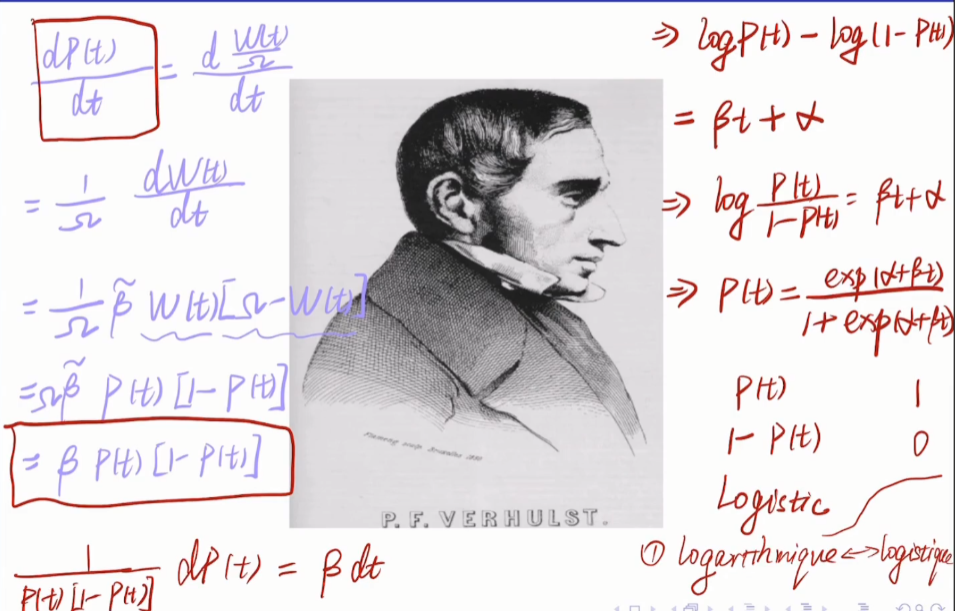 dP(t)/dt = d W(t)/Ω / dt
= 1/Ω dW(t)/dt
= 1/Ω β̃ W(t)[Ω-W(t)]
= Ωβ̃ P(t)[1-P(t)]
= β P(t)[1-P(t)]
1/P(t)[1-P(t)] dP(t) = β dt
P. F. VERHULST.
⇒ log P(t) - log(1-P(t))
= βt + α
⇒ log P(t)/1-P(t) = βt+α
⇒ P(t) = exp(α+βt)/1+exp(α+βt)
P(t) 1
1-P(t) 0
Logistic
① logarithmique ↔ logistique